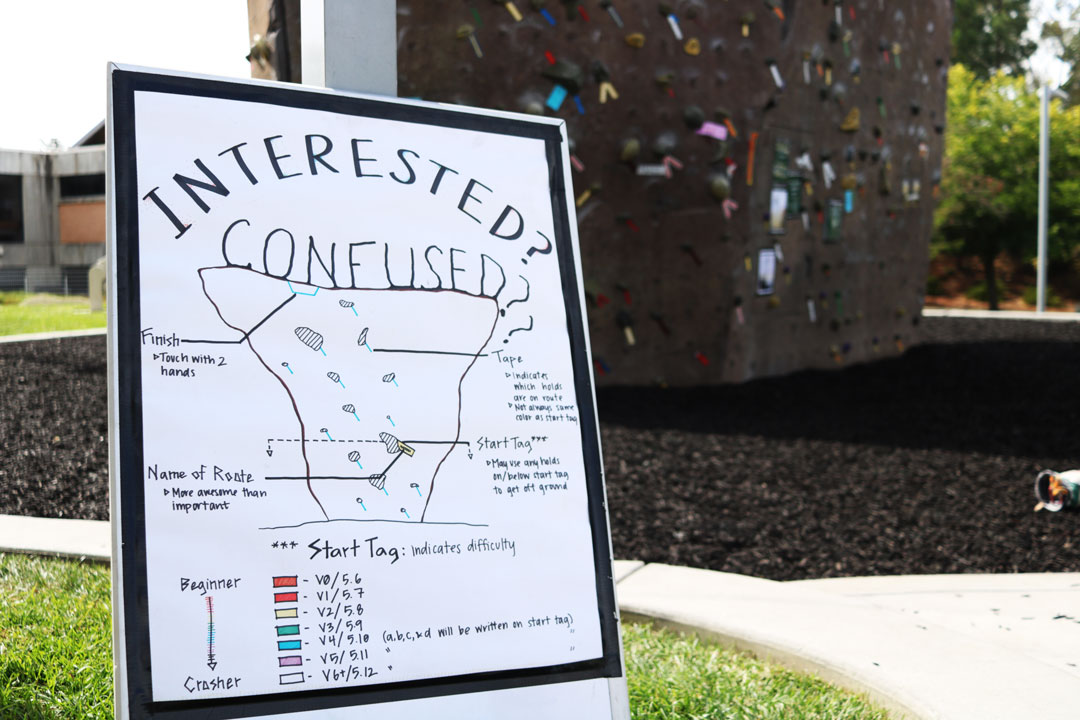 INTERESTED?
CONFUSED???
Finish
Touch with 2
hands
Tape
Indicates
which holds
are on route
Not always same
color as start tag
Start Tag***
May use any holds
on/below start tag
to get off ground
Name of Route
More awesome than
important
*** Start Tag: Indicates difficulty
Beginner
Crasher
- V0/5.6
- V1/5.7
- V2/5.8
- V3/5.9
- V4/5.10 (a,b,c,&d will be written on start tag)
- V5/5.11 " "
- V6+/5.12 " "